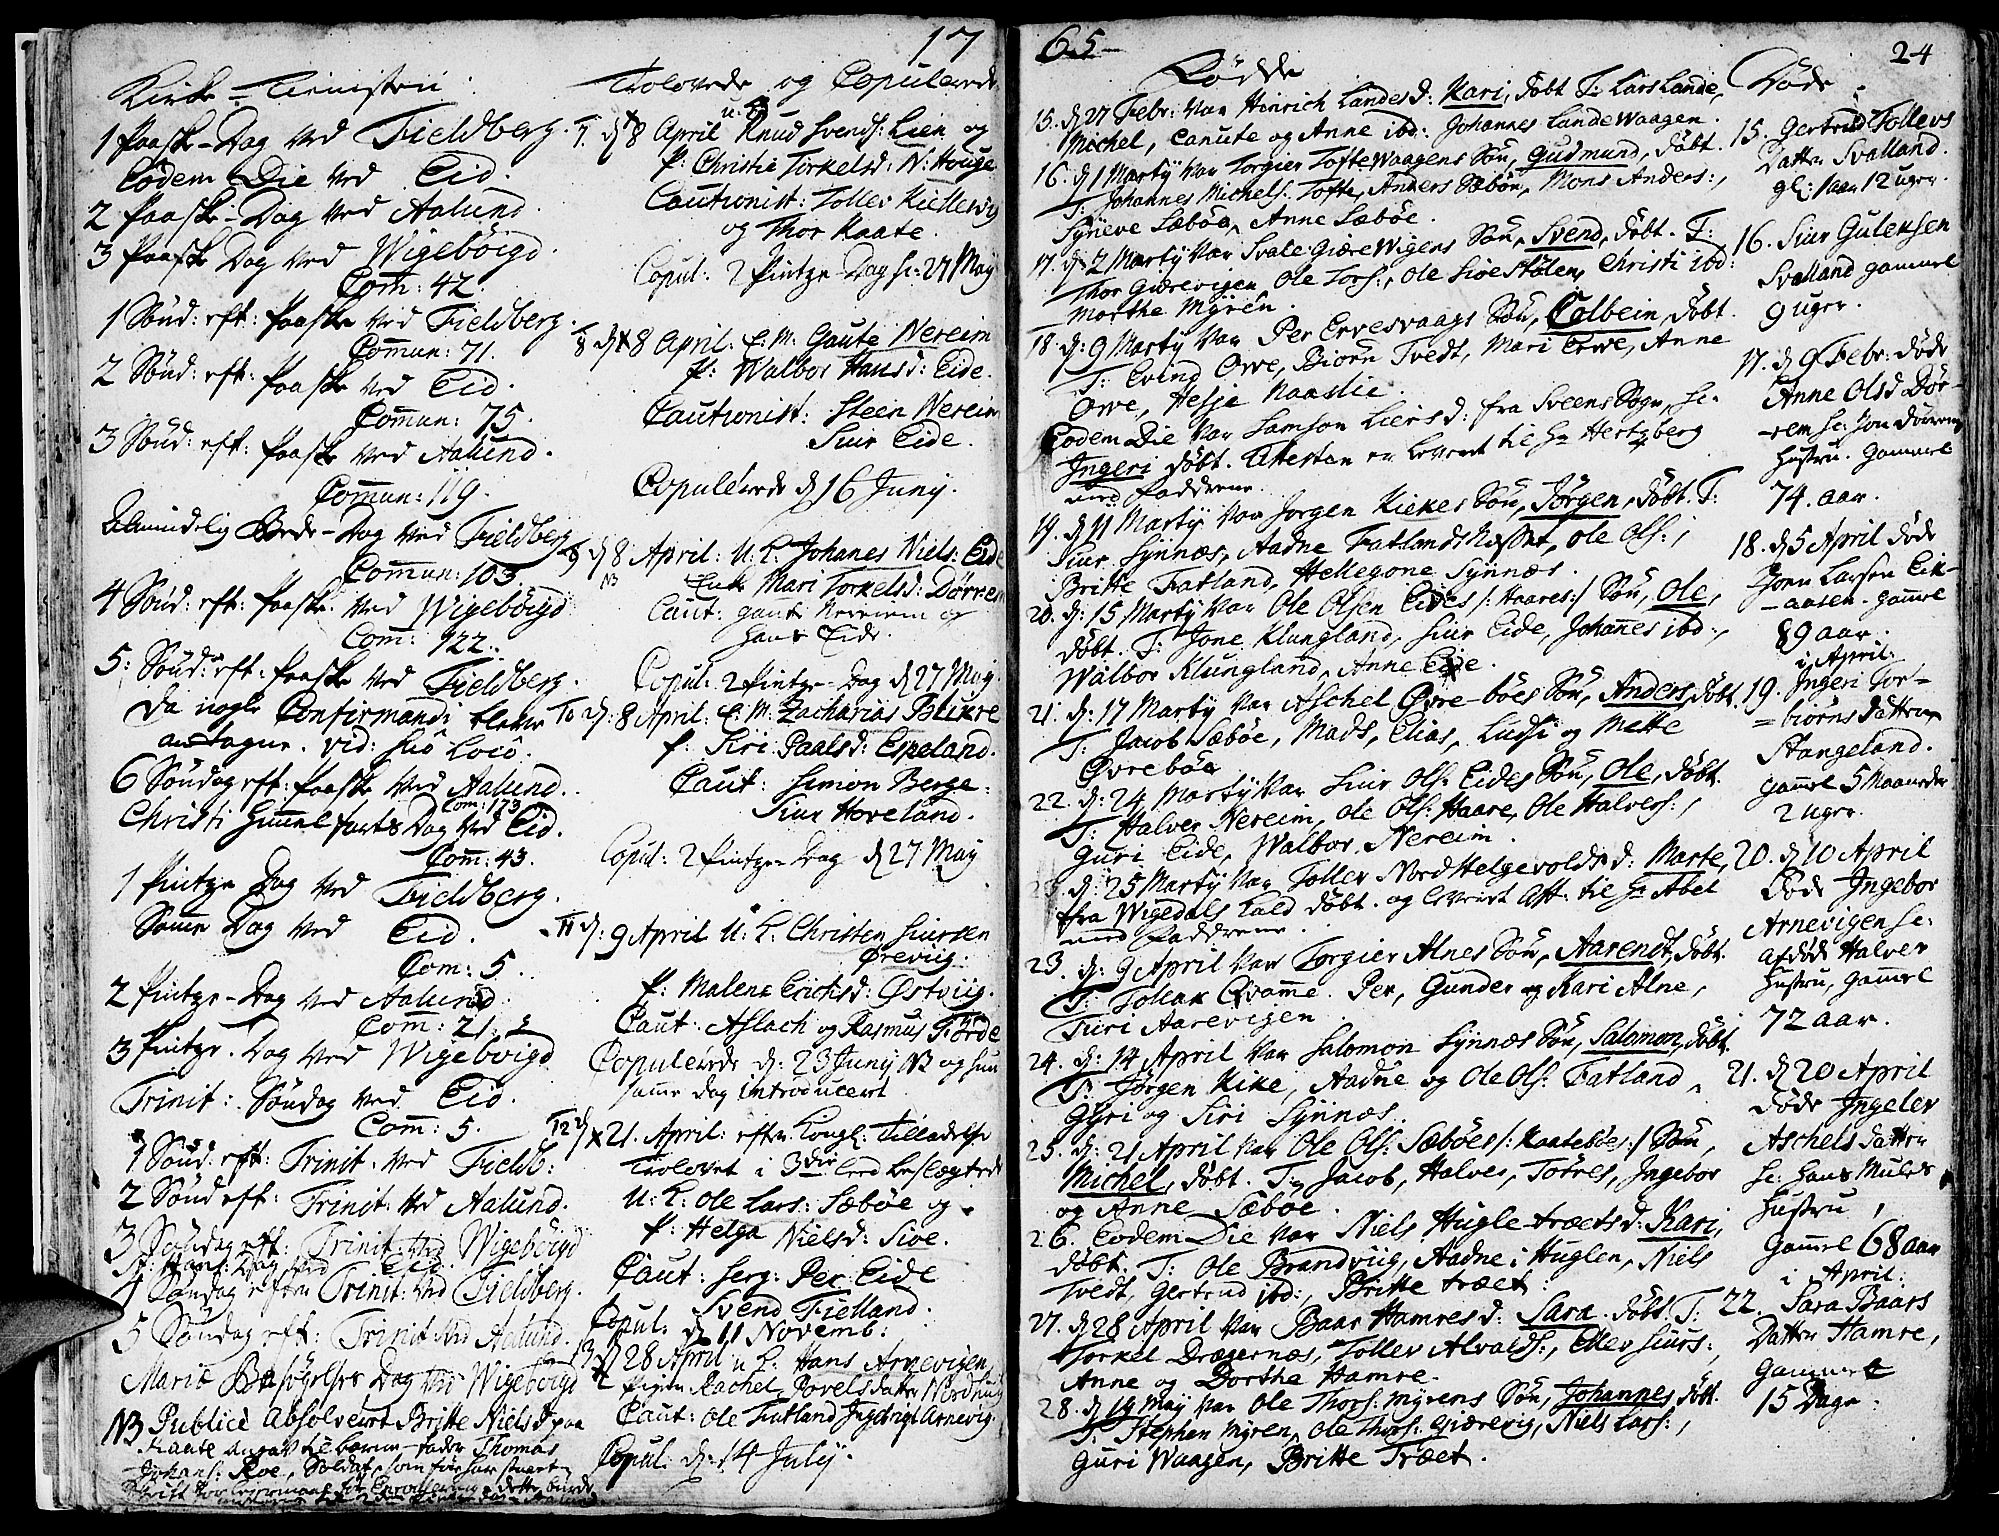 17
Kirke-Tienisten:
1 Paaske-Dag ved Fieldberg.
Eodem Die ved Eid.
2 Paaske-Dag ved Aalund.
3 Paaske Dag ved Wigebøigd.
Com: 42
1 Sönd: eft: Paaske ved Fieldberg.
Commun: 71.
2 Sönd: eft: Paaske ved Eid.
Commun: 75.
3 Sönd: eft: Paaske ved Aalund.
Commun: 119.
Almindelig Bede-Dag ved Fieldberg
Commun: 103.
4 Sönd: eft: Paaske ved Wigebøigd
Com: 122.
5: Sönd: eft: Paaske ved Fieldberg.
da nogle Confirmandi bleve
antagne. vid: suo loco.
6 Söndag eft: Paaske ved Aalund.
Com: 173
Christi Himmelfarts Dag ved Eid.
Com: 43.
1 Pintze Dag ved Fieldberg.
Samme Dag ved Eid.
Com: 5.
2 Pintze-Dag ved Aalund
Com: 21.
3 Pintze-Dag ved Wigebøigd
Trinit: Söndag ved Eid.
Com: 5.
1 Sönd: eft: Trinit: ved Fieldb:
2 Sönd eft: Trinit: ved Aalund.
3 Söndag eft: Trinit: ved Wigebøigd
St: Hans: Dag ved Eid
4 Söndag efter Trinit: ved Fieldberg.
5 Söndag eft: Trinit ved Aalund.
Mariæ Besögelses Dag ved Wigebøigd
NB Publice Absolveert Britte Nielsd paa
Kaate angav til barne-fader Thomas
Johans: Roe, Soldat, som før har

Trolovede og Copulerede
7. d 8 April u. k. Knud Svends: Lien og
P: Christie Torkelsd: N: Houge
Cautionist: Tollev Kiellesvig
og Thor Kaate.
Copul: 2 Pintze-Dag se: 27 May
8 d 8 April. E. M. Gaute Nereim
P: Walbor Hansd: Eide.
Cautionist: Steen Nereim
Siur Eide.
Copulerede d 16 Juny.
9 d 8 April: U. K. Johanes Niels: Eide
NB Enk Mari Torkelsd: Dørrem
Caut: Gaut Nereim og
Hans Eide.
Copul: 2 Pintze-Dag d 27 May.
10 d: 8 April: E. M. Zacharias Blikre
P: Siri Paalsd: Espeland.
Caut: Simon Berge.
Siur Hoveland.
Copul: 2 Pintze-Dag d 27 May
11 d: 9 April U: K. Christen Siursen
Ørevig.
P: Malene Erichsd: Østviig.
Caut: Aslach og Rasmus Förde
Copulerede d: 23 Juny NB og hun
samme dag introduceert
12 d 21. April: efter Kongl: Tilladelse
Trolovet i 3die leed beslægtede
U: K: Ole Lars: Sæbøe og
P: Helga Nielsd: Sioe.
Caut: Serg: Per Eide
Svend Fielland.
Copul: d 11 Novemb:
13 d 28 April u k. Hans Arnevigen,
Pigen Rachel Povels datter Nordhug
Caut: Ole Fatland Ingebrigt Arnevig.
Copul: d: 14 July.

65
24
Födde
15. d 27 Febr: var Hinrich Landes d: Kari, döbt T: Lars Lande,
Michel, Canute og Anne ibd: Johannes Landewaagen.
16. d 1 Marty var Torgier Toftewaagens Sön, Gudmund, döbt.
T: Johannes Michels: Tofte, Anders Sæbøe, Mons Anders:,
Syneve Sæbøe, Anne Sæbøe.
17. d: 2 Marty var Svale Giærewigens Sön, Svend, döbt. T:
Thor Giærevigen, Ole Tors:, Ole Sioestølen, Christi ibd:
Marthe Myren.
18. d: 9 Marty var Per Ervesvaags Sön, Colbein, döbt.
T: Evind Orve, Biørn Tvedt, Mari Erve, Anne
Orve, Helje Naadie.
Eodem Die var Samson Liers d: fra Sveens Sogn, se:
Ingeri döbt. Attesten er leveret til Hr Hertzberg
med Fadderne.
19. d 11 Marty var Jørgen Kiekes Sön, Jørgen, döbt. T:
Siur Synnæs, Aadne Fatlandsnæsset, Ole Ols:,
Britte Fatland, Hellegone Synnæs.
20. d: 15 Marty var Ole Olsen Eides /: Haares:/ Sön, Ole,
döbt. T: Jone Klungland, Siur Eide, Johannes ibd:,
Walbor Klungland, Anne Eide.
21. d: 17 Marty var Aschel Øvre-bøes Sön, Anders, döbt
T: Jacob Sæbøe, Mads, Elias, Ludsi og Mette
Øvrebøe
22. d: 24 Marty var Siur Ols: Eides Sön, Ole, döbt.
T: Halver Nereim, Ole Ols: Haare, Ole Halvers:,
Guri Eide, Walbor Nereim.
d: 25 Marty var Tollev Nord Helgevolds d: Marte,
fra Wigedals Kald döbt. og leveret Att: til Hr Abel
med Fadderne.
23. d: 9 April var Torgier Alnes Sön, Aarendt, döbt.
T: Tollak Qvamme. Per, Gunder og Kari Alne,
Turi Aarevigen
24. d: 14 April var Salomon Synnæs Sön, Salomon, döbt.
T: Jørgen Kike, Aadne og Ole Ols: Fatland,
Guri og Siri Synnæs.
25. d: 21 April var Ole Ols: Sæbøes /: Kaatebøes:/ Sön,
Michel, döbt. T: Jacob, Halver, Törres, Ingebor
og Anne Sæbøe.
26. Eodem Die var Niels Hugle-træets d: Kari,
döbt. T: Ole Brandviig, Aadne i Huglen, Niels
Tvedt, Gertrud ibd:, Britte Træet.
27. d 28 April var Baar Hamres d: Sara döbt. T:
Torkel Dragernæs, Tollev Alvalds:, Ellev Siurs:,
Anne og Dorthe Hamre.
28. d 19 May var Ole Thors: Myrens Sön, Johannes döbt.
T: Stephen Myren, Ole Thors: Giærevig, Niels Lars:,
Guri Waagen, Britte Træet.

Döde
15. Gertrud Tollevs
Datter Svalland.
gl: 1 aar 12 uger.
16. Siur Guleksen
Svalland gammel
9 uger.
17. d 9 Febr: döde
Anne Olsd Dør-
rem se: Jon Dørrems
Hustru. Gammel
74. aar.
18. d 5 April döde
Joen Larsen Eik-
aasen. Gaml
89 aar.
i April:
19. Ingeri Tor-
biørns Datter
Stangeland.
gammel 5 Maaneder
2 uger.
20. d 10 April
döde Ingebor
Arnevigen se:
afdøde Halver
Hustru, gammel
72 aar.
21. d 20 April
döde Ingelev
Aschels Datter
se: Hans Mules
Hustru,
Gammel 68 aar
i April:
22. Sara Baars
Datter Hamre,
Gammel
15 Dage.